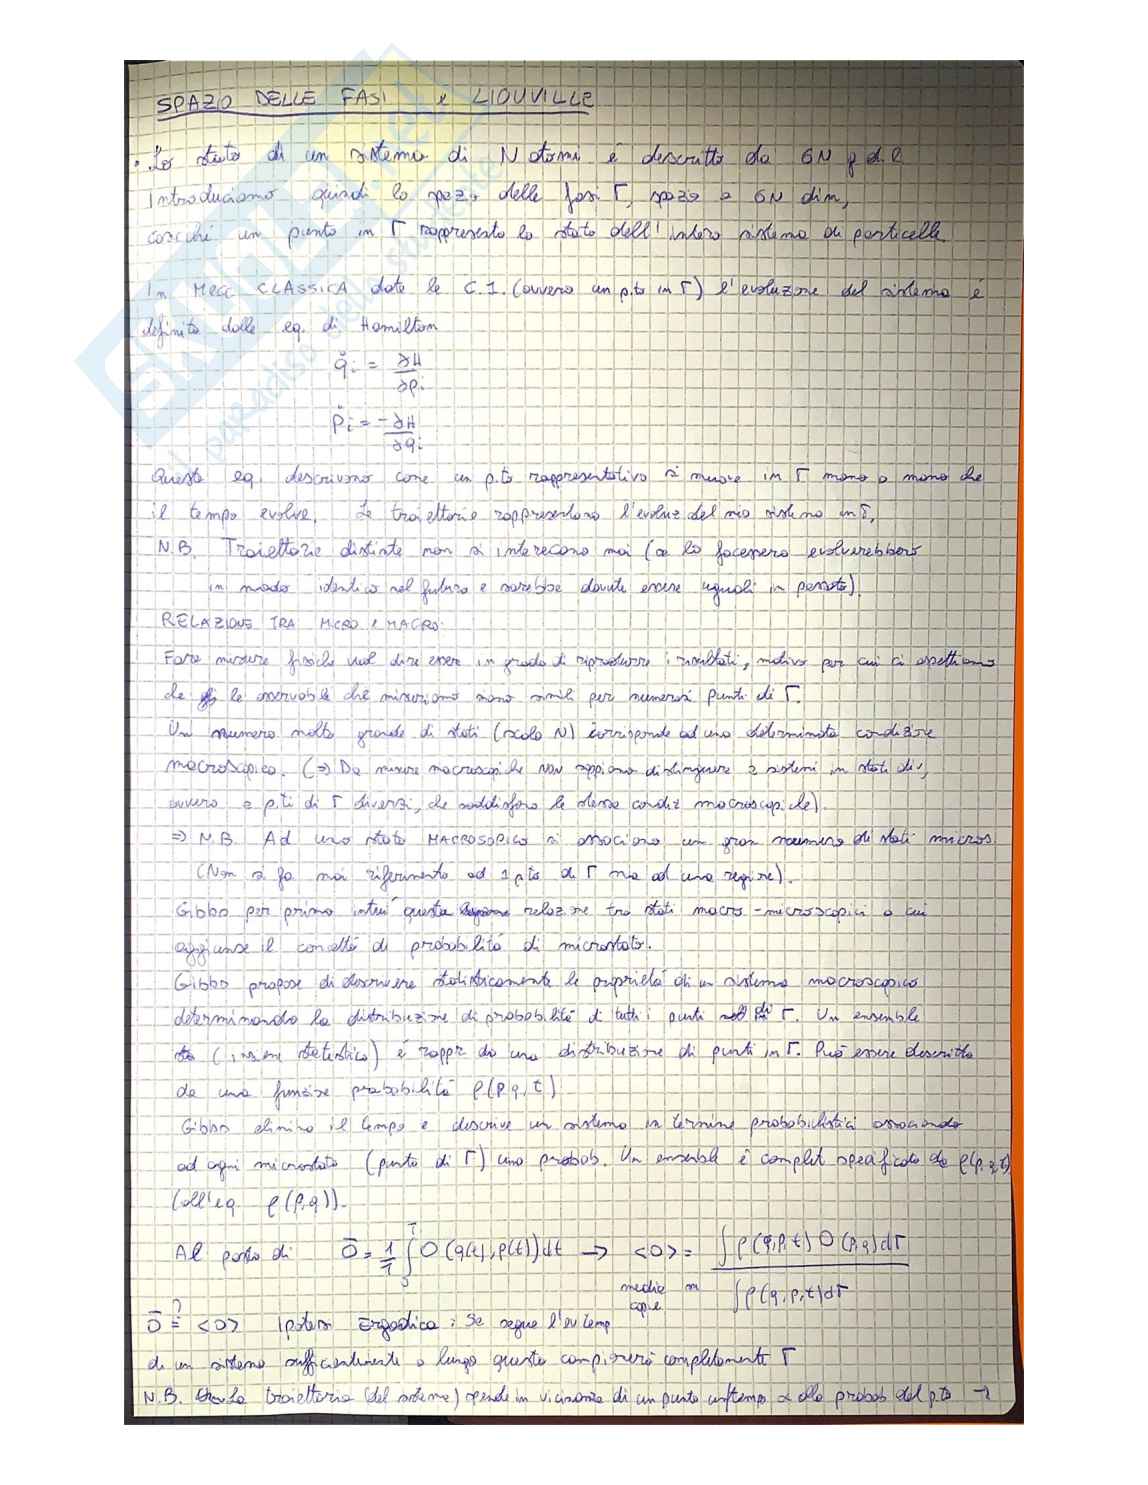 SPAZO DELLE FASI e LIOUVILLE
• Lo stato di un sistema di N atomi è descritto da 6N g.d.l
Introduciamo quindi lo spazio delle fasi Γ, spazio a 6N dim,
cosicché un punto in Γ rappresenta lo stato dell'intero sistema di particelle
In Mecc CLASSICA date le C.I. (ovvero un p.to in Γ) l'evoluzione del sistema é
definita dalle eq. di Hamilton
q̇i = ∂H/∂pi
ṗi = -∂H/∂qi
Queste eq. descrivono come un p.to rappresentativo si muove in Γ mano a mano che
il tempo evolve. Le traiettorie rappresentano l'evoluz del mio sistema in Γ,
N.B. Traiettorie distinte non si intersecano mai (se lo facessero evolverebbero
in modo identico nel futuro e sarebbe dovute essere uguali in passato).
RELAZIONE TRA MICRO e MACRO
Fare misure fisiche vuol dire essere in grado di riprodurre i risultati, motivo per cui ci aspettiamo
che le osservabili che misuriamo siano simili per numerosi punti di Γ.
Un numero molto grande di stati (scala N) corrisponde ad una determinata condizione
macroscopica. (⇒ Da misure macroscopiche NON sappiamo distinguere 2 sistemi in stati div,
ovvero 2 p.ti di Γ diversi, che soddisfano le stesse condiz macroscopiche).
⇒ N.B. Ad uno stato MACROSOPICO si associano un gran numero di stati micros
(Non si fa mai riferimento ad 1 p.to di Γ ma ad una regione).
Gibbs per primo intuì questa relazione tra stati macro-microscopici a cui
aggiunse il concetto di probabilità di microstato.
Gibbs propose di descrivere statisticamente le proprietà di un sistema macroscopico
determinando la distribuzione di probabilità di tutti i punti di Γ. Un ensemble
(insieme statistico) é rappr da una distribuzione di punti in Γ. Può essere descritto
da una funzione probabilità ρ(p,q,t)
Gibbs elimina il tempo e descrive un sistema in termine probabilistici associando
ad ogni microstato (punto di Γ) una probab. Un ensemble é complet specificato da ρ(p,q,t)
(all'eq. ρ(p,q)).
Al posto di Ō = 1/τ ∫₀^τ O(q(t),p(t))dt → <O> = ∫ρ(q,p,t) O(p,q)dΓ / ∫ρ(q,p,t)dΓ
media su copie
Ō ≟ <O> Ipotesi Ergodica: Se segue l'ev temp
di un sistema sufficientemente a lungo questa compirerà completamente Γ
N.B. La traiettoria (del sistema) spende in vicinanza di un punto un tempo α alla probab del p.to →